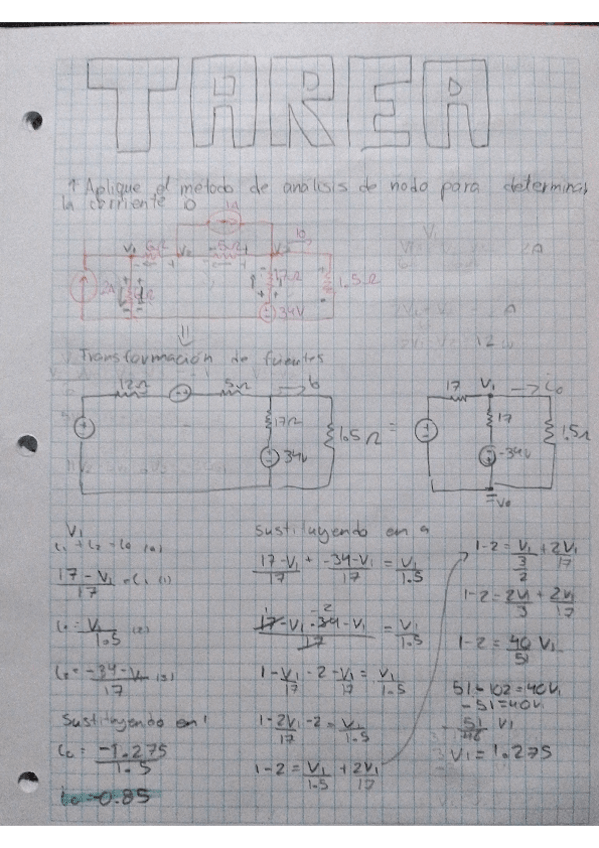 TAREA
Aplique el metodo de analisis de nodo para determinar
la corriente io
1A
V1 6Ω V2 5Ω io
2A 6Ω 17Ω 1.5Ω
34V
Transformación de fuentes
12Ω 5Ω io
17Ω 1.5Ω
34V
=
17 V1 io
17 1.5Ω
-34V
V0
V1
i1 + i2 = i0 (a)
17-V1/17 = i1 (1)
i0 = V1/1.5 (2)
i2 = -34-V1/17 (3)
Sustituyendo en 1
i0 = -1.275/1.5
i0 = -0.85
Sustituyendo en a
17-V1/17 + -34-V1/17 = V1/1.5
17-V1-34-V1/17 = V1/1.5
1-V1/17-2-V1/17 = V1/1.5
1-2V1/17-2 = V1/1.5
1-2 = V1/1.5 + 2V1/17
1-2 = V1/3/2 + 2V1/17
1-2 = 2V1/3 + 2V1/17
1-2 = 40/51 V1
51-102=40V1
-51=40V1
V1 = 1.275